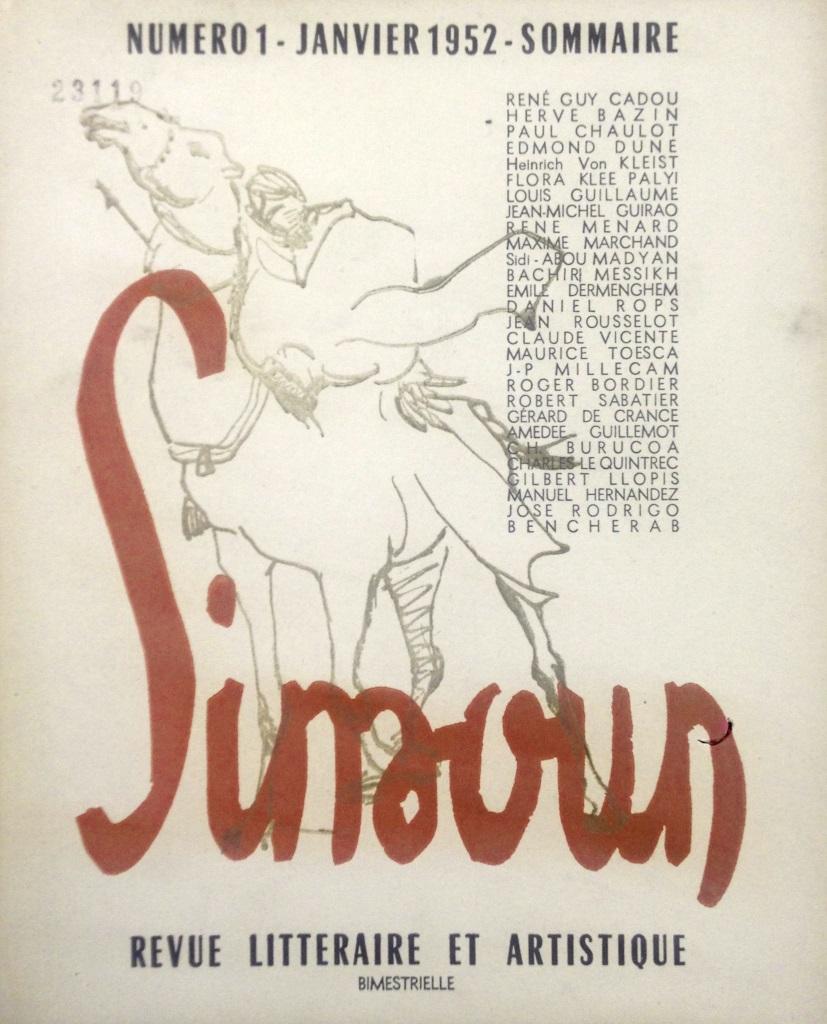 NUMERO 1 - JANVIER 1952 - SOMMAIRE
23119
RENÉ GUY CADOU
HERVE BAZIN
PAUL CHAULOT
EDMOND DUNE
Heinrich Von KLEIST
FLORA KLEE PALYI
LOUIS GUILLAUME
JEAN-MICHEL GUIRAO
RENE MENARD
MAXIME MARCHAND
Sidi - ABOU MADYAN
BACHIRI MESSIKH
EMILE DERMENGHEM
DANIEL ROPS
JEAN ROUSSELOT
CLAUDE VICENTE
MAURICE TOESCA
J-P MILLECAM
ROGER BORDIER
ROBERT SABATIER
GÉRARD DE CRANCE
AMEDEE GUILLEMOT
C.H. BURUCOA
CHARLES LE QUINTREC
GILBERT LLOPIS
MANUEL HERNANDEZ
JOSE RODRIGO
BENCHERAB
Simoun
REVUE LITTERAIRE ET ARTISTIQUE
BIMESTRIELLE